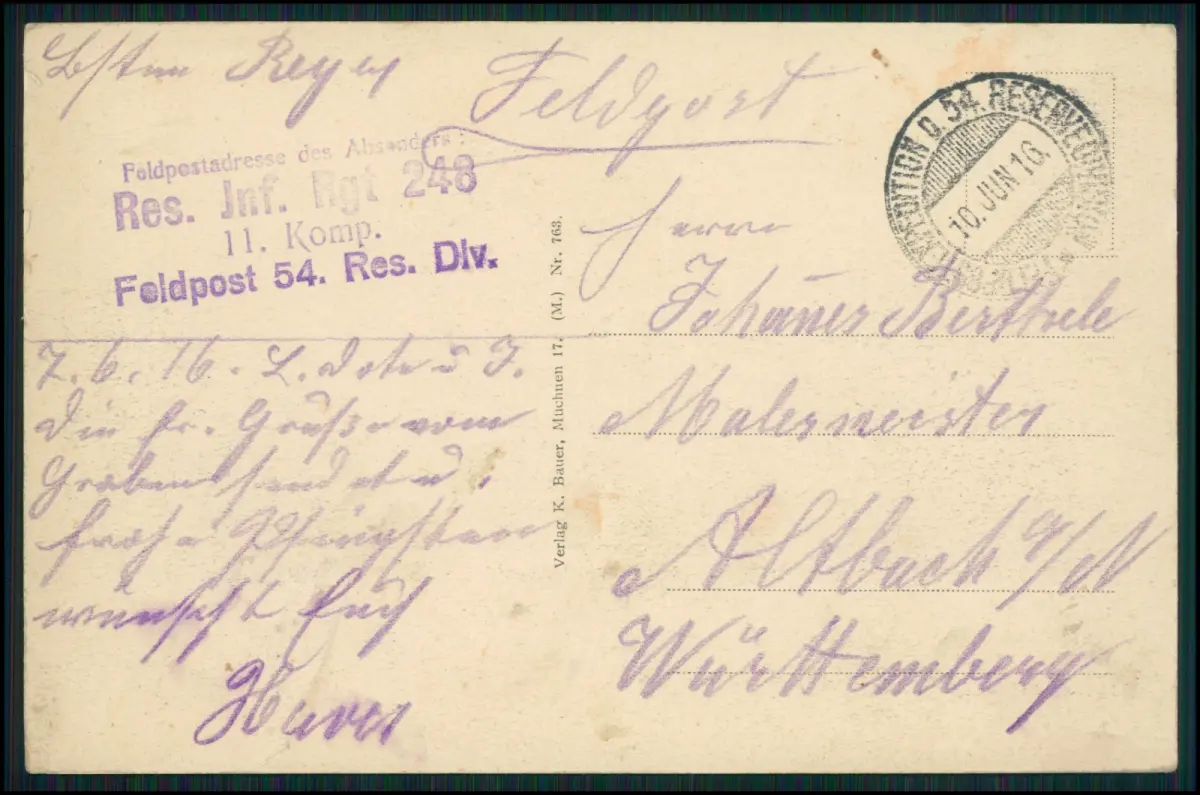 Feldpost
Feldpostadresse des Absenders:
Res. Inf. Rgt 248
11. Komp.
Feldpost 54. Res. Div.
EXPEDITION D. 54. RESERVEDIVISION
10. JUN 16.
Herrn
Johannes Berthele
Malermeister
Altbach a/N
Württemberg
7. 6. 16. L. u
Die Grüße vom
Graben sendet u.
frohe Pfingsten
wünscht Euch
Verlag K. Bauer, Muchnen 17. (M.) Nr. 763.